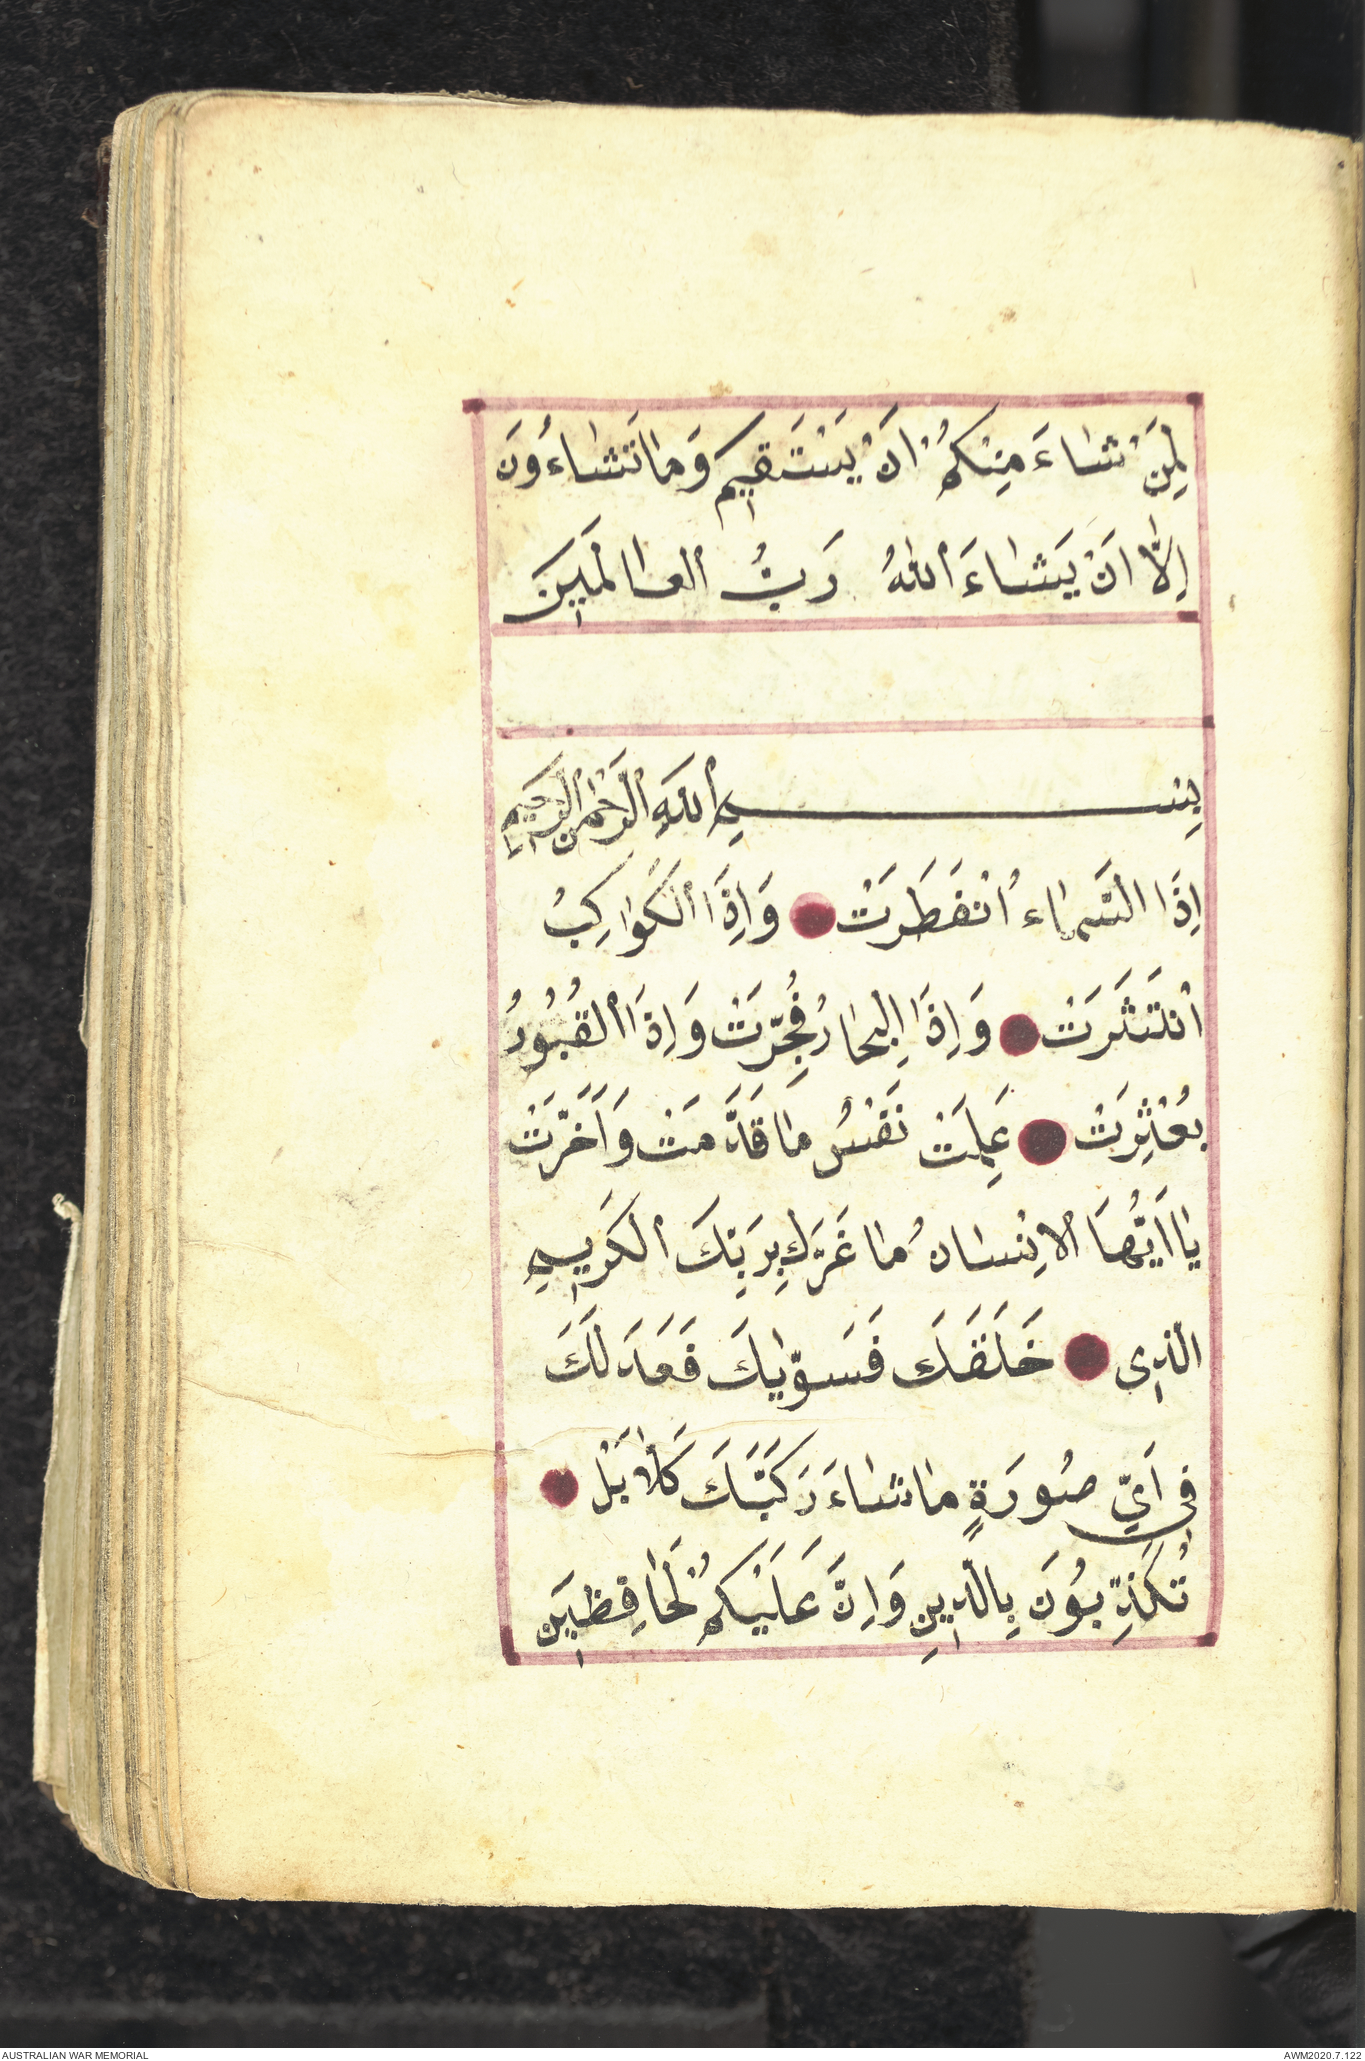 لِمَنْ شٰاءَ مِنْكُمْ اَنْ يَسْتَقِيمَ وَمٰا تَشٰاءُونَ
اِلّٰا اَنْ يَشٰاءَ اللّٰهُ رَبُّ الْعٰالَمِينَ
بِسْمِ اللّٰهِ الرَّحْمٰنِ الرَّحِيمِ
اِذَا السَّمٰاء انْفَطَرَتْ وَاِذَا الْكَوٰاكِبُ
انْتَثَرَتْ وَاِذَا الْبِحٰارُ فُجِّرَتْ وَاِذَا الْقُبُورُ
بُعْثِرَتْ عَلِمَتْ نَفْسُ مٰا قَدَّمَتْ وَاَخَّرَتْ
يٰا اَيُّهَا الْاِنْسٰانُ مٰا غَرَّكَ بِرَبِّكَ الْكَرِيمِ
الَّذِى خَلَقَكَ فَسَوّٰيكَ فَعَدَلَكَ
فِى اَيِّ صُورَةٍ مٰا شٰاءَ رَكَّبَكَ كَلّٰا بَلْ
تُكَذِّبُونَ بِالدِّينِ وَاِنَّ عَلَيْكُمْ لَحٰافِظِينَ
AUSTRALIAN WAR MEMORIAL
AWM2020.7.122